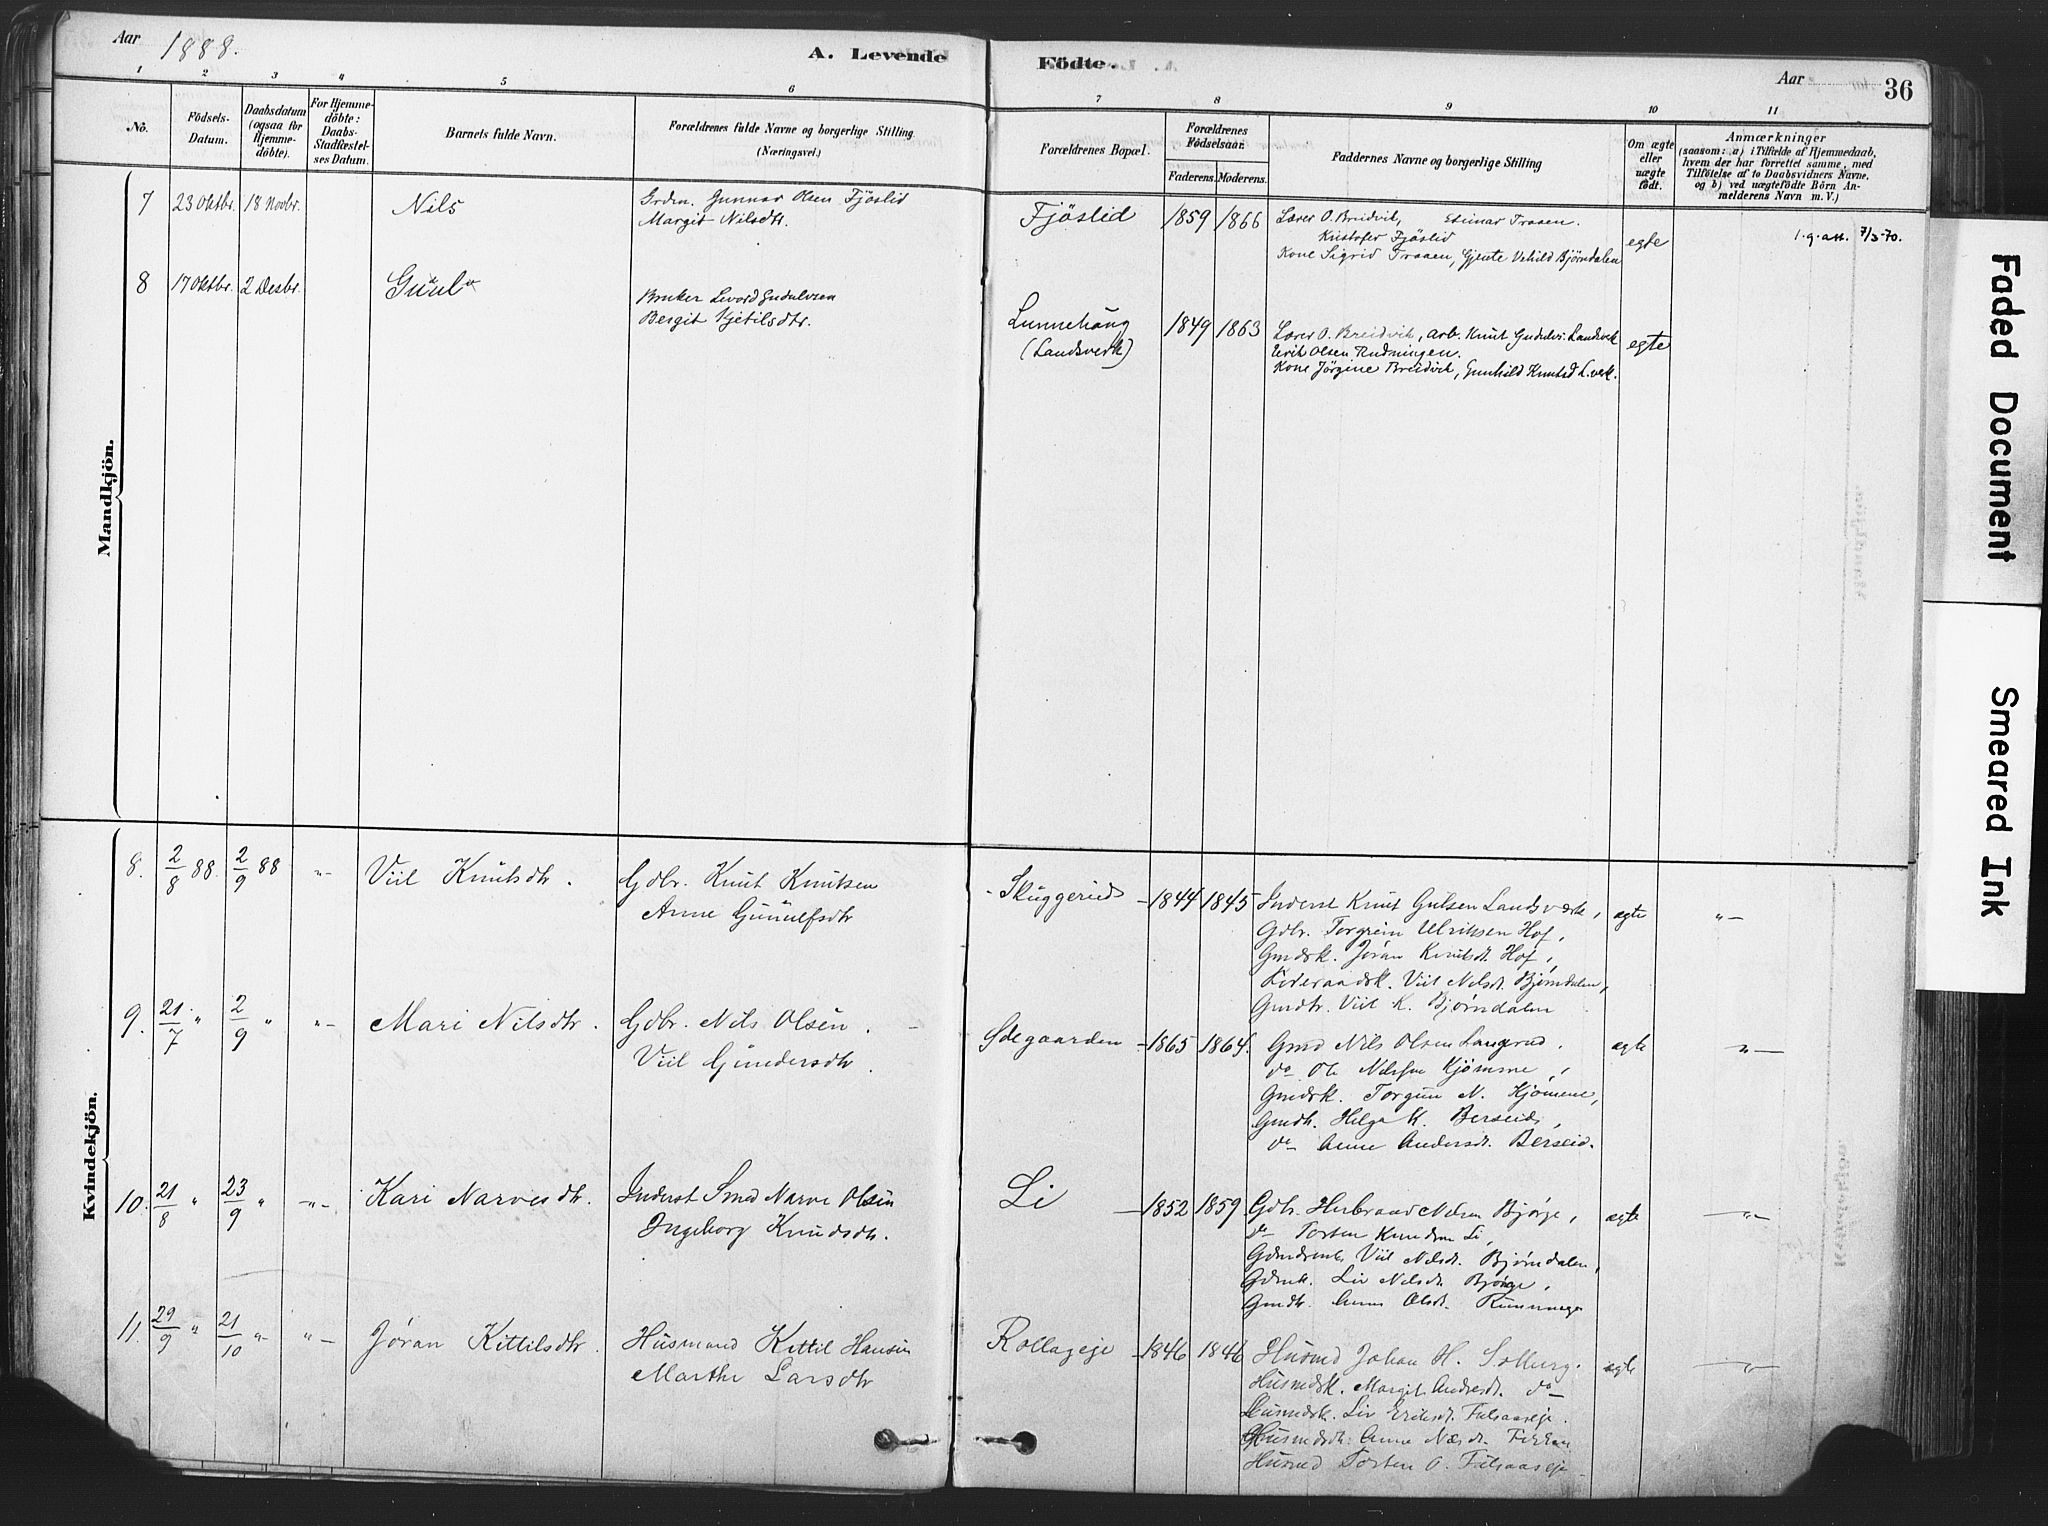 Aar 1888.
A. Levende
Födte.
Aar
36
1
2
3
4
5
6
7
8
9
10
11
No.
Födsels-
Datum.
Daabsdatum
(ogsaa for
Hjemme-
döbte).
For Hjemme-
döbte:
Daabs-
Stadfæstel-
ses Datum.
Barnets fulde Navn.
Forældrenes fulde Navne og borgerlige Stilling.
(Næringsvei.)
Forældrenes Bopæl.
Forældrenes
Födselsaar.
Faderens.
Moderens.
Faddernes Navne og borgerlige Stilling
Om ægte
eller
uægte
födt.
Anmærkninger
(saasom: a) i Tilfælde af Hjemmedaab,
hvem der har forrettet samme, med
Tilföielse af to Daabsvidners Navne,
og b) ved uægtefödte Börn An-
melderens Navn m. V.)
Mandkjön.
7 23 Oktbr. 18 Novbr. Nils
Grdm. Gunnar Olsen Fjöslid
Margit Nilsdtr.
Fjöslid 1859 1866
Lærer O. Breidvik, Steinar Traaen.
Kristofer Fjöslid
Kone Sigrid Traaen, Gjente Vehild Björndalen
egte
1.g. att. 7/3-70.
8 17 Oktbr. 2 Desbr.
Bruker Levord Gudulvsen
Bergit Kjetilsdtr.
Lunnehaug
(Landsverk)
1849 1863
Lærer O. Breidvik, arb. Knut Gudulvs. Landsverk
Erik Olsen Rudningen.
Kone Jörgine Breidvik, Gunhild Knutsd L.verk.
egte
Kvindekjön.
8. 2/8 88. 2/9 88 -"- Viil Knutsdtr.
Gdbr. Knut Knutsen
Anne Gunulfsdtr
Skuggerud 1844 1845
Inderst Knut Gulsen Landsværk,
Gdbr. Torgrim Ulriksen Hof,
Gmdsk. Jøran Knutsdt. Hof,
Føderaadsk. Viil Nilsdt. Bjørndalen,
Gmdtr. Viil K. Bjørndalen
ægte -"-
9. 21/7 " 2/9 " -"- Mari Nilsdtr.
Gdbr. Nils Olsen.
Viil Gundersdtr.
Ødegaarden 1865 1864.
Gmd Nils Olsen Langrud.
do Ole Nilssen Kjømme,
Gmdsk. Torgun N. Kjømene,
Gmdtr. Helga K. Berseid,
do Anne Andersdt. Berseid.
ægte -"-
10. 21/8 " 23/9 " -"- Kari Narvesdtr.
Inderst Smed Narve Olsen
Ingeborg Knudsdtr.
Li 1852 1859
Gdbr. Herbrand Nilsen Bjørge,
do Torsten Knudsen Li,
Viil Nilsdt. Bjørndalen,
Gdmk. Liv Nilsdt. Bjørge,
Gmdtr. Anne Olsdt.
ægte -"-
11. 29/9 " 21/10 " -"- Jøran Kittilsdtr.
Husmand Kittil Hansen
Marthe Larsdtr
Rollageje 1846 1846
Husmd Johan H. Solberg.
Husmdsk. Margit Andersdt. do
Husmdsk. Liv Eriksdt. Fulsaaseje.
Husmdsdtr. Anne
Husmd Torsten O. Fulsaaseje
ægte -"-
Faded Document
Smeared Ink